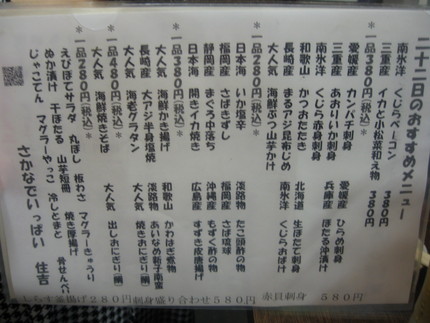 二十二日のおすすめメニュー
南氷洋 くじらベーコン 380円
三重産 イカと小松菜和え物 380円
*一品380円(税込)*
愛媛産 カンパチ刺身 愛媛産 ひらめ刺身
三重産 あおりいか刺身 兵庫産 ほたる沖漬け
南氷洋 くじら赤身刺身
和歌山 かつおたたき 北海道 生ほたて刺身
長崎産 まるアジ昆布じめ 南氷洋 くじらおばけ
大人気 海鮮ぶつ山芋かけ
*一品280円(税込)*
日本海 いか塩辛 淡路物 たこ頭酢の物
福岡産 さばきずし 福岡産 さば琉球
静岡産 まぐろ中落ち 沖縄産 もずく酢の物
日本海 開きイカ焼き 広島産 すずき皮唐揚げ
*一品380円(税込)*
大人気 海鮮かき揚げ 和歌山 かわはぎ煮物
長崎産 大アジ半身塩焼 淡路物 あいなめ新子南蛮
大人気 海鮮焼きそば 大人気 焼きおにぎり
*一品480円(税込)*
大人気 海老グラタン 大人気 出しおにぎり
えびぽてサラダ 丸ぼし 板わさ マグラーきゅうり 骨せんべい
ぬか漬け 干ほたる 山芋短冊 焼き厚揚げ
じゃこてん マグラーやっこ 冷しとまと
さかなでいっぱい 住吉
しらす釜揚げ280円 刺身盛り合わせ580円 赤貝刺身 580円